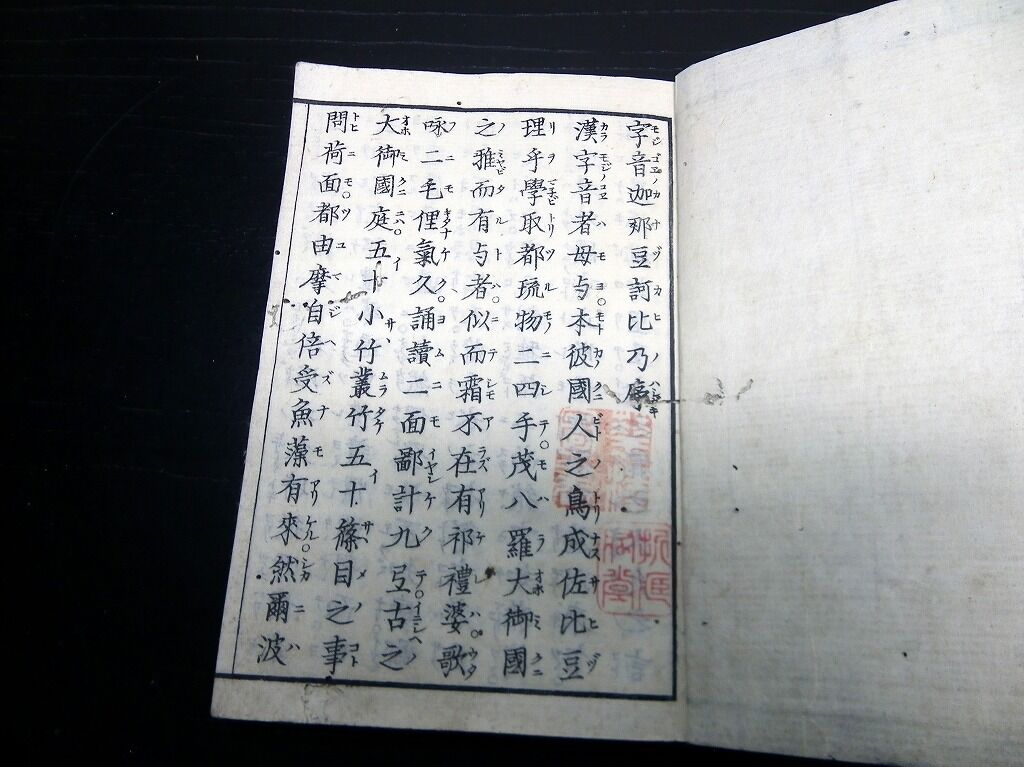 字音迦那豆訶比乃序
漢字音者母与本彼國人之鳥成佐比豆
理乎學取都琉物二四手茂八羅大御國
之雅而有与者似而霜不在有祁禮婆歌
咏二毛俚氣久誦讀二面鄙計九弖古之
大御國庭五十小竹叢竹五十篠目之事
問荷面都由摩自倍受魚藻有來然爾波